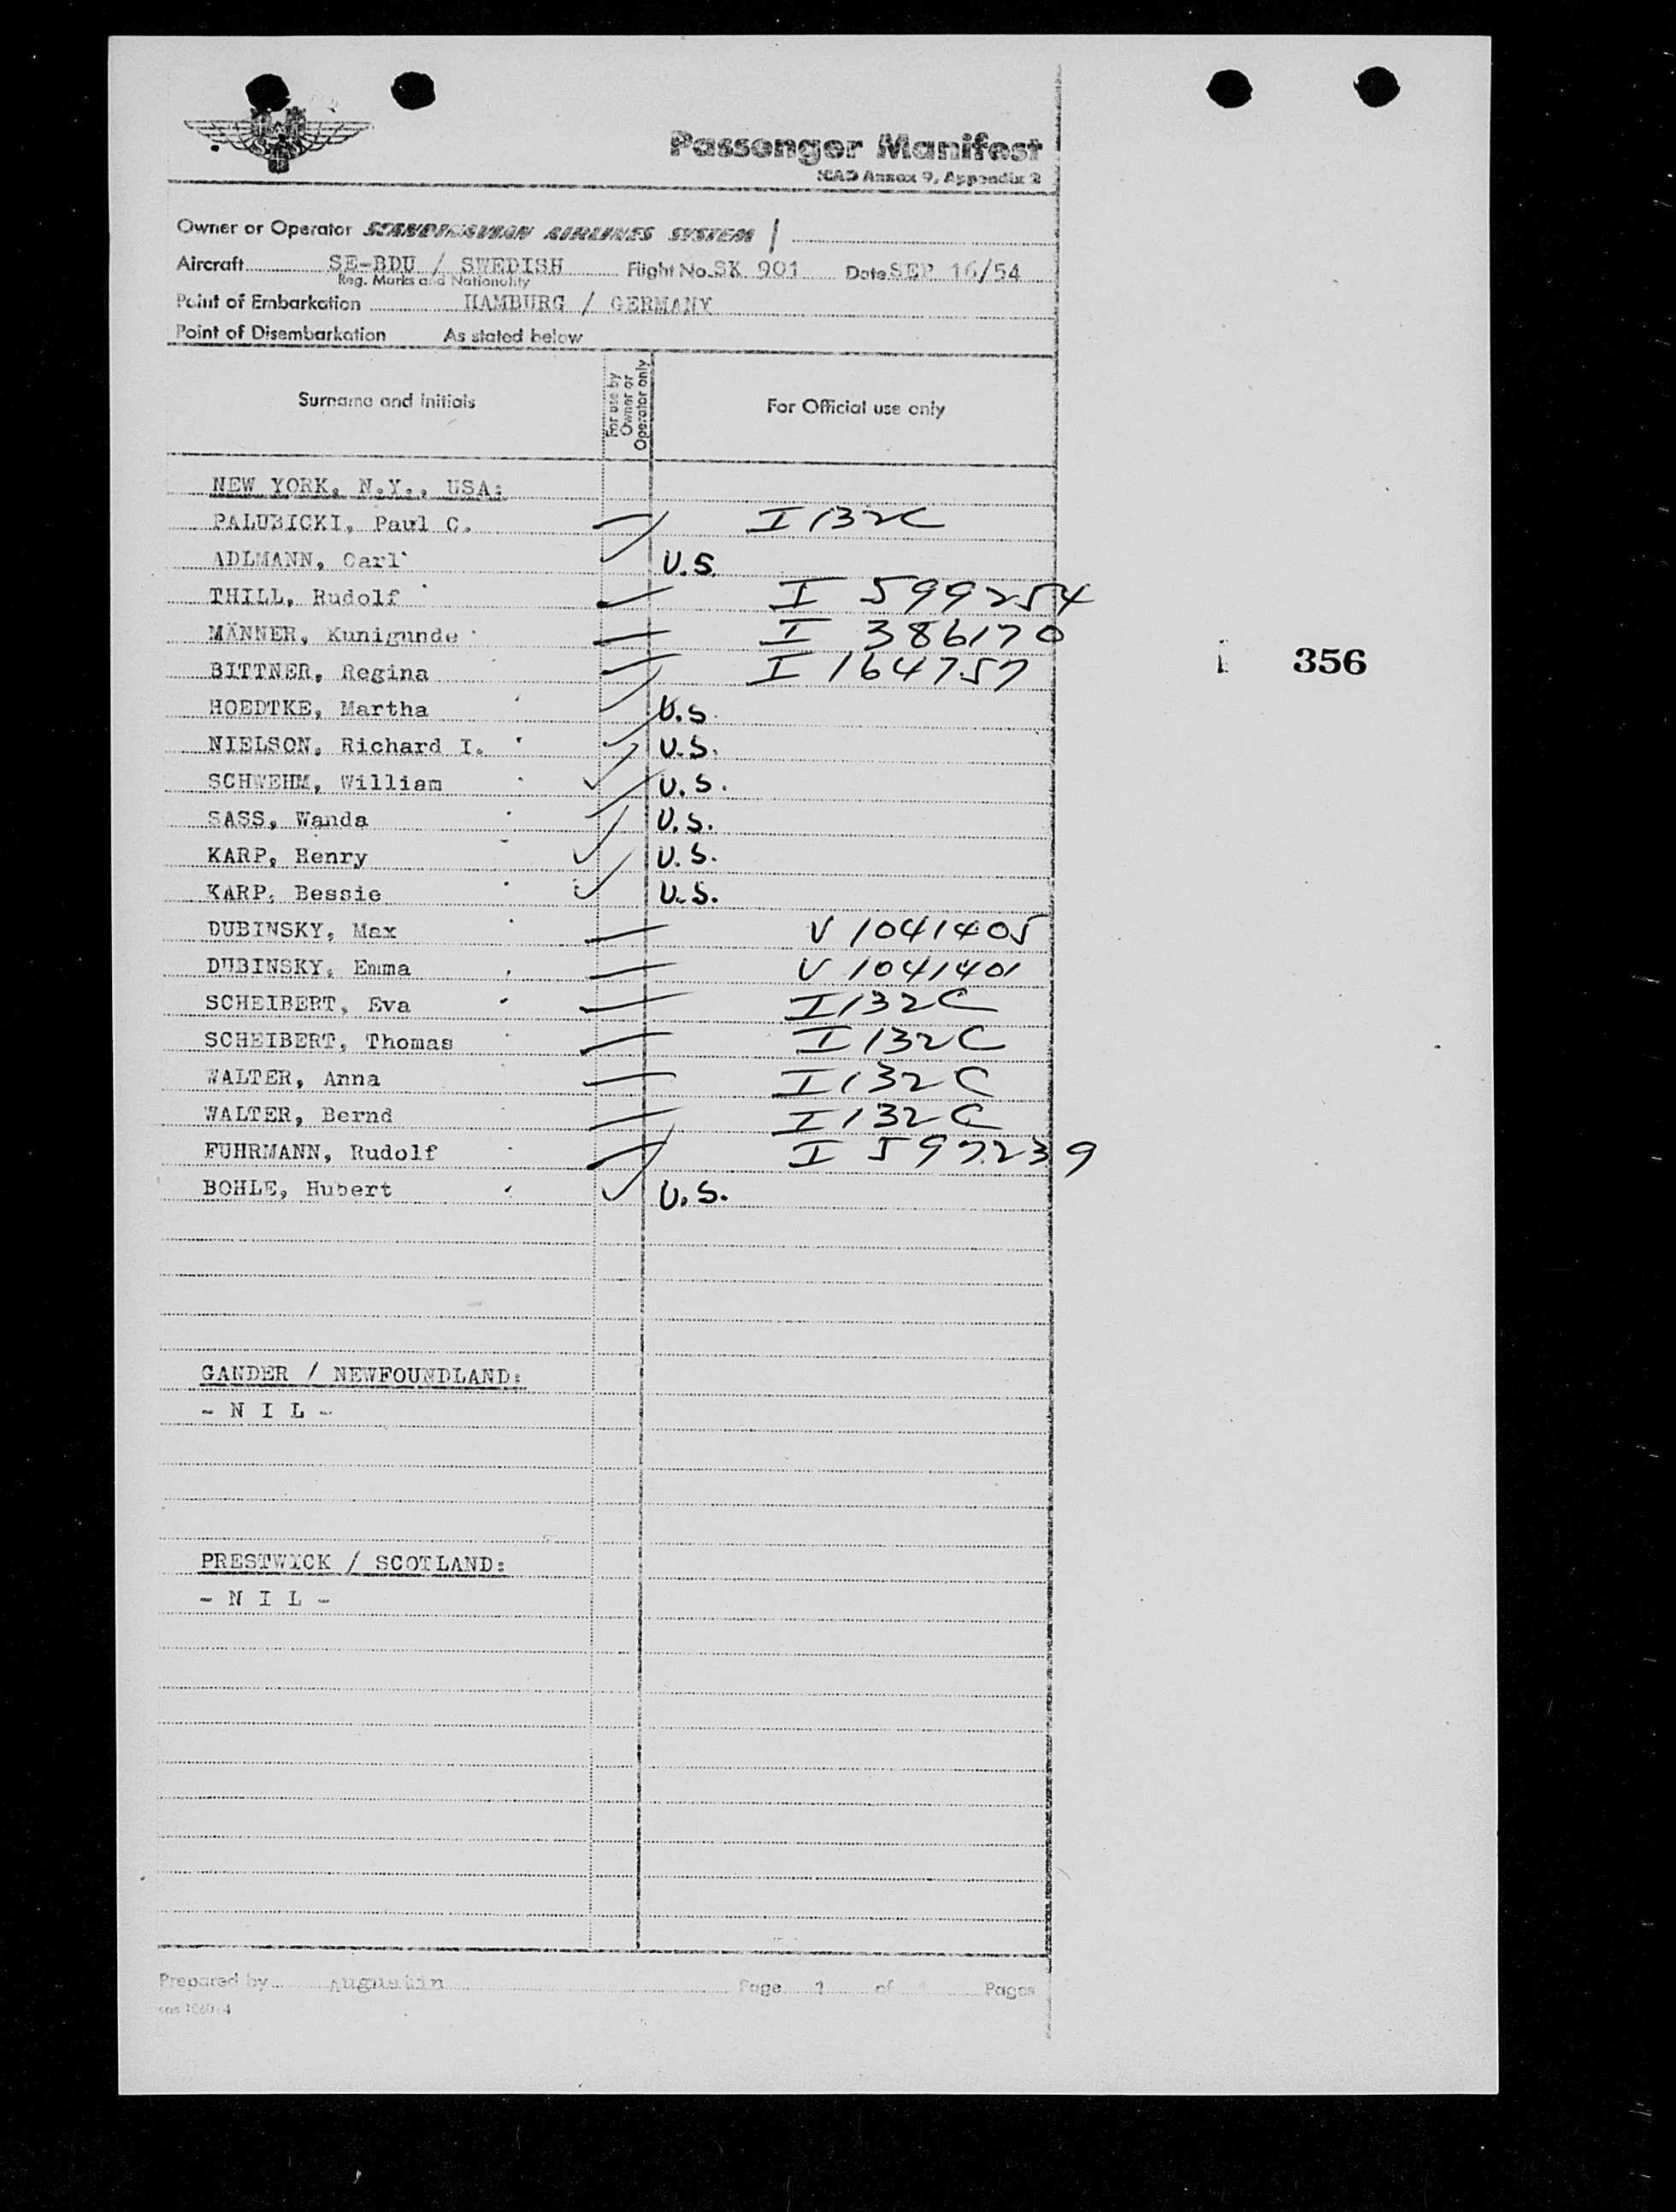 SAS
Passenger Manifest
ICAO Annex 9, Appendix 2
Owner or Operator SCANDINAVIAN AIRLINES SYSTEM /
Aircraft SE-BDU / SWEDISH Flight No. SK 901 Date SEP 16/54
Reg. Marks and Nationality
Point of Embarkation HAMBURG / GERMANY
Point of Disembarkation As stated below
Surname and initials For use by Owner or Operator only For Official use only
NEW YORK, N.Y., USA:
PALUBICKI, Paul C. I 132C
ADLMANN, Carl U.S.
THILL, Rudolf I 599254
MÄNNER, Kunigunde I 386170
BITTNER, Regina I 164757
356
HOEDTKE, Martha U.S.
NIELSON, Richard I. U.S.
SCHWEHM, William U.S.
SASS, Wanda U.S.
KARP, Henry U.S.
KARP, Bessie U.S.
DUBINSKY, Max V 1041405
DUBINSKY, Emma V 1041401
SCHEIBERT, Eva I 132C
SCHEIBERT, Thomas I 132C
WALTER, Anna I 132C
WALTER, Bernd I 132C
FUHRMANN, Rudolf I 597239
BOHLE, Hubert U.S.
GANDER / NEWFOUNDLAND:
- N I L -
PRESTWICK / SCOTLAND:
- N I L -
Prepared by Augustin Page 1 of Pages